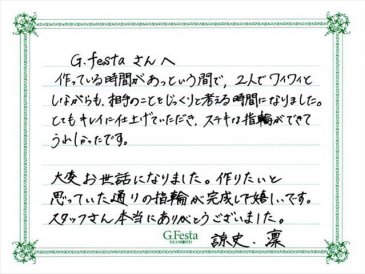 G.festa さんへ
作っている時間があっという間で、2人でワイワイと
しながらも、相手のことをじっくりと考える時間になりました。
とてもキレイに仕上げていただき、ステキな指輪ができて
うれしかったです。
大変お世話になりました。作りたいと
思っていた通りの指輪が完成して嬉しいです。
スタッフさん本当にありがとうございました。
諒史・凛
G.Festa
DIAMOND